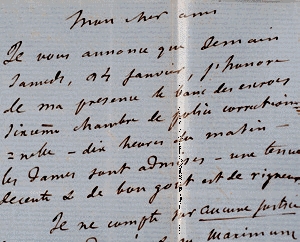 mon cher ami
Je vous annonce que Demain
Samedi, 24 Janvier, j'honore
de ma présence le banc des escrocs
Sixième chambre de police correction=
=nelle — dix heures du matin —
les Dames sont admises — une tenue
décente & de bon goût est de rigueur
Je ne compte sur aucune justice
Maximum